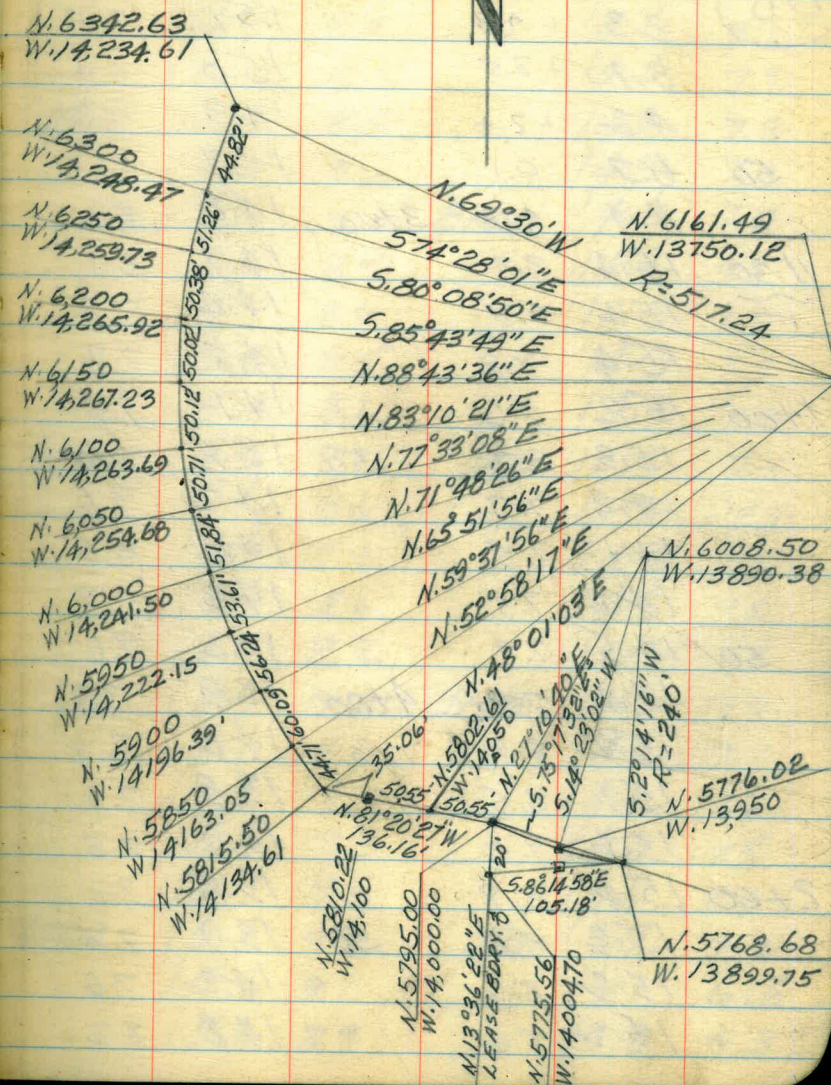 N
N. 6342.63
W. 14,234.61
N. 6,300
W. 14,248.47
N. 6,250
W. 14,259.73
N. 6,200
W. 14,265.92
N. 6150
W. 14,267.23
N. 6,100
W. 14,263.69
N. 6,050
W. 14,254.68
N. 6,000
W. 14,241.50
N. 5950
W. 14,222.15
N. 5900
W. 14196.39'
N. 5850
W 14163.05
N. 5815.50
W. 14134.61
44.82'
51.26'
50.38'
50.02'
50.12'
50.71'
51.84'
53.61'
56.24'
60.09'
44.71'
N. 69°30' W
S74°28'01"E
S. 80°08'50"E
S. 85°43'49"E
N. 88°43'36"E
N. 83°10'21"E
N. 77°33'08"E
N. 71°48'26"E
N. 65°51'56"E
N. 59°37'56"E
N. 52°58'17"E
N. 48°01'03"E
N. 6161.49
W. 13750.12
R=517.24
N. 6008.50
W. 13890.38
35.06'
50.55'
50.55'
N. 81°20'27"W
136.16'
N. 5802.61
W. 14050
N. 27°10'40"E
S. 75°17'32"E
S. 14°23'02" W
S. 2°14'16" W
R=240'
N. 5776.02
W. 13,950
20'
S. 86°14'58"E
105.18'
N. 5810.22
W. 14,100
N. 5795.00
W. 14,000.00
N. 13°36'22"E
LEASE BDRY.
N. 5775.56
W. 14004.70
N. 5768.68
W. 13899.75